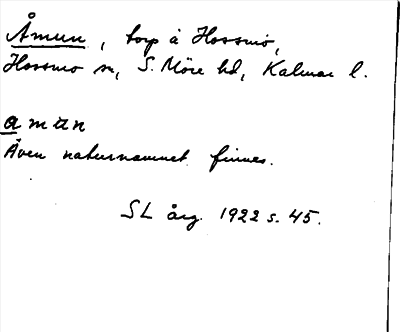 Åmun, torp å Hossmo,
Hossmo sn, S. Möre hd, Kalmar l.
aman
Även naturnamnet finnes.
SL årg. 1922 s. 45.